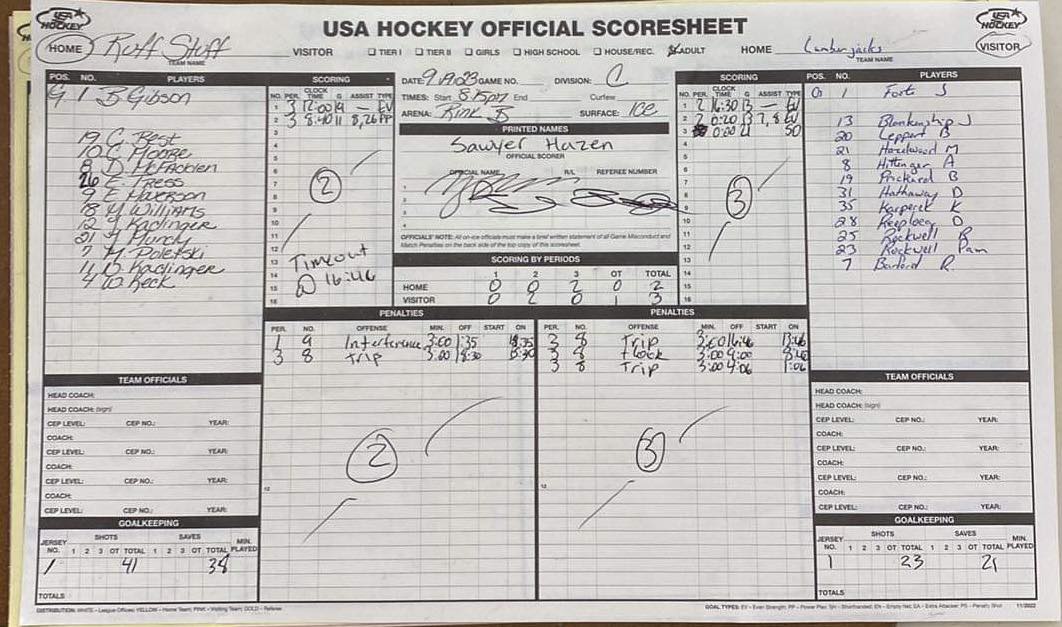 USA HOCKEY
USA HOCKEY OFFICIAL SCORESHEET
USA HOCKEY
HOME Ruff Stuff VISITOR TIER I TIER II GIRLS HIGH SCHOOL HOUSE/REC. ADULT HOME Lumberjacks VISITOR
TEAM NAME TEAM NAME
POS. NO. PLAYERS
G 1 B. Gibson
19 C. Best
10 C. Moore
8 D. McFadden
26 E. Tress
9 E.
18 M. Williams
12 Kadlinger
21 Mundy
7 M. Poletski
11 D. Kadlinger
4 W. Keck
SCORING
NO. PER. CLOCK TIME G ASSIST TYPE
1 3 12:00 19 — EV
2 3 8:40 11 8,26 PP
3
4
5
6
7
8
9
10
11
12
13
14
15
16
2
Timeout
@ 16:46
DATE: 9.19.23 GAME NO. DIVISION: C
TIMES: Start 8:15pm End Curfew
ARENA: Rink B SURFACE: ICE
PRINTED NAMES
Sawyer Hazen
OFFICIAL SCORER
OFFICIAL NAME R/L REFEREE NUMBER
1
2
3
4
OFFICIALS' NOTE: All on-ice officials must make a brief written statement of all Game Misconduct and
Match Penalties on the back side of the top copy of this scoresheet.
SCORING BY PERIODS
1 2 3 OT TOTAL
HOME 0 0 2 0 2
VISITOR 0 2 0 1 3
SCORING
NO. PER. CLOCK TIME G ASSIST TYPE
1 2 16:30 13 — EV
2 2 0:20 13 7,8 EV
3 0:00 21 SO
4
5
6
7
8
9
10
11
12
13
14
15
16
3
POS. NO. PLAYERS
G 1 Fort J
13 Blankenship J
20 Leppert B
21 Hazelwood M
8 Hittinger A
19 Prickard B
31 Hathaway D
35 Karperek K
28 Reeploeg D
25 Rockwell R
23 Rockwell Pam
7 Barford R.
PENALTIES
PER. NO. OFFENSE MIN. OFF START ON
1 9 Interference 3:00 1:35
3 8 Trip 3:00
2
12
PENALTIES
PER. NO. OFFENSE MIN. OFF START ON
3 8 Trip 3:00 16:46 13:46
3 8 Hook 3:00
3 8 Trip 3:00 4:06 1:06
3
12
TEAM OFFICIALS
HEAD COACH:
HEAD COACH: (sign)
CEP LEVEL: CEP NO.: YEAR:
COACH:
CEP LEVEL: CEP NO.: YEAR:
COACH:
CEP LEVEL: CEP NO.: YEAR:
COACH:
CEP LEVEL: CEP NO.: YEAR:
GOALKEEPING
JERSEY NO. SHOTS 1 2 3 OT TOTAL SAVES 1 2 3 OT TOTAL MIN. PLAYED
1 41 38
TOTALS
TEAM OFFICIALS
HEAD COACH:
HEAD COACH: (sign)
CEP LEVEL: CEP NO.: YEAR:
COACH:
CEP LEVEL: CEP NO.: YEAR:
COACH:
CEP LEVEL: CEP NO.: YEAR:
COACH:
CEP LEVEL: CEP NO.: YEAR:
GOALKEEPING
JERSEY NO. SHOTS 1 2 3 OT TOTAL SAVES 1 2 3 OT TOTAL MIN. PLAYED
1 23 21
TOTALS
DISTRIBUTION: WHITE – League Offices; YELLOW – Home Team; PINK – Visiting Team; GOLD – Referee
GOAL TYPES: EV – Even Strength; PP – Power Play; SH – Shorthanded; EN – Empty Net; EA – Extra Attacker; PS – Penalty Shot 11/2022